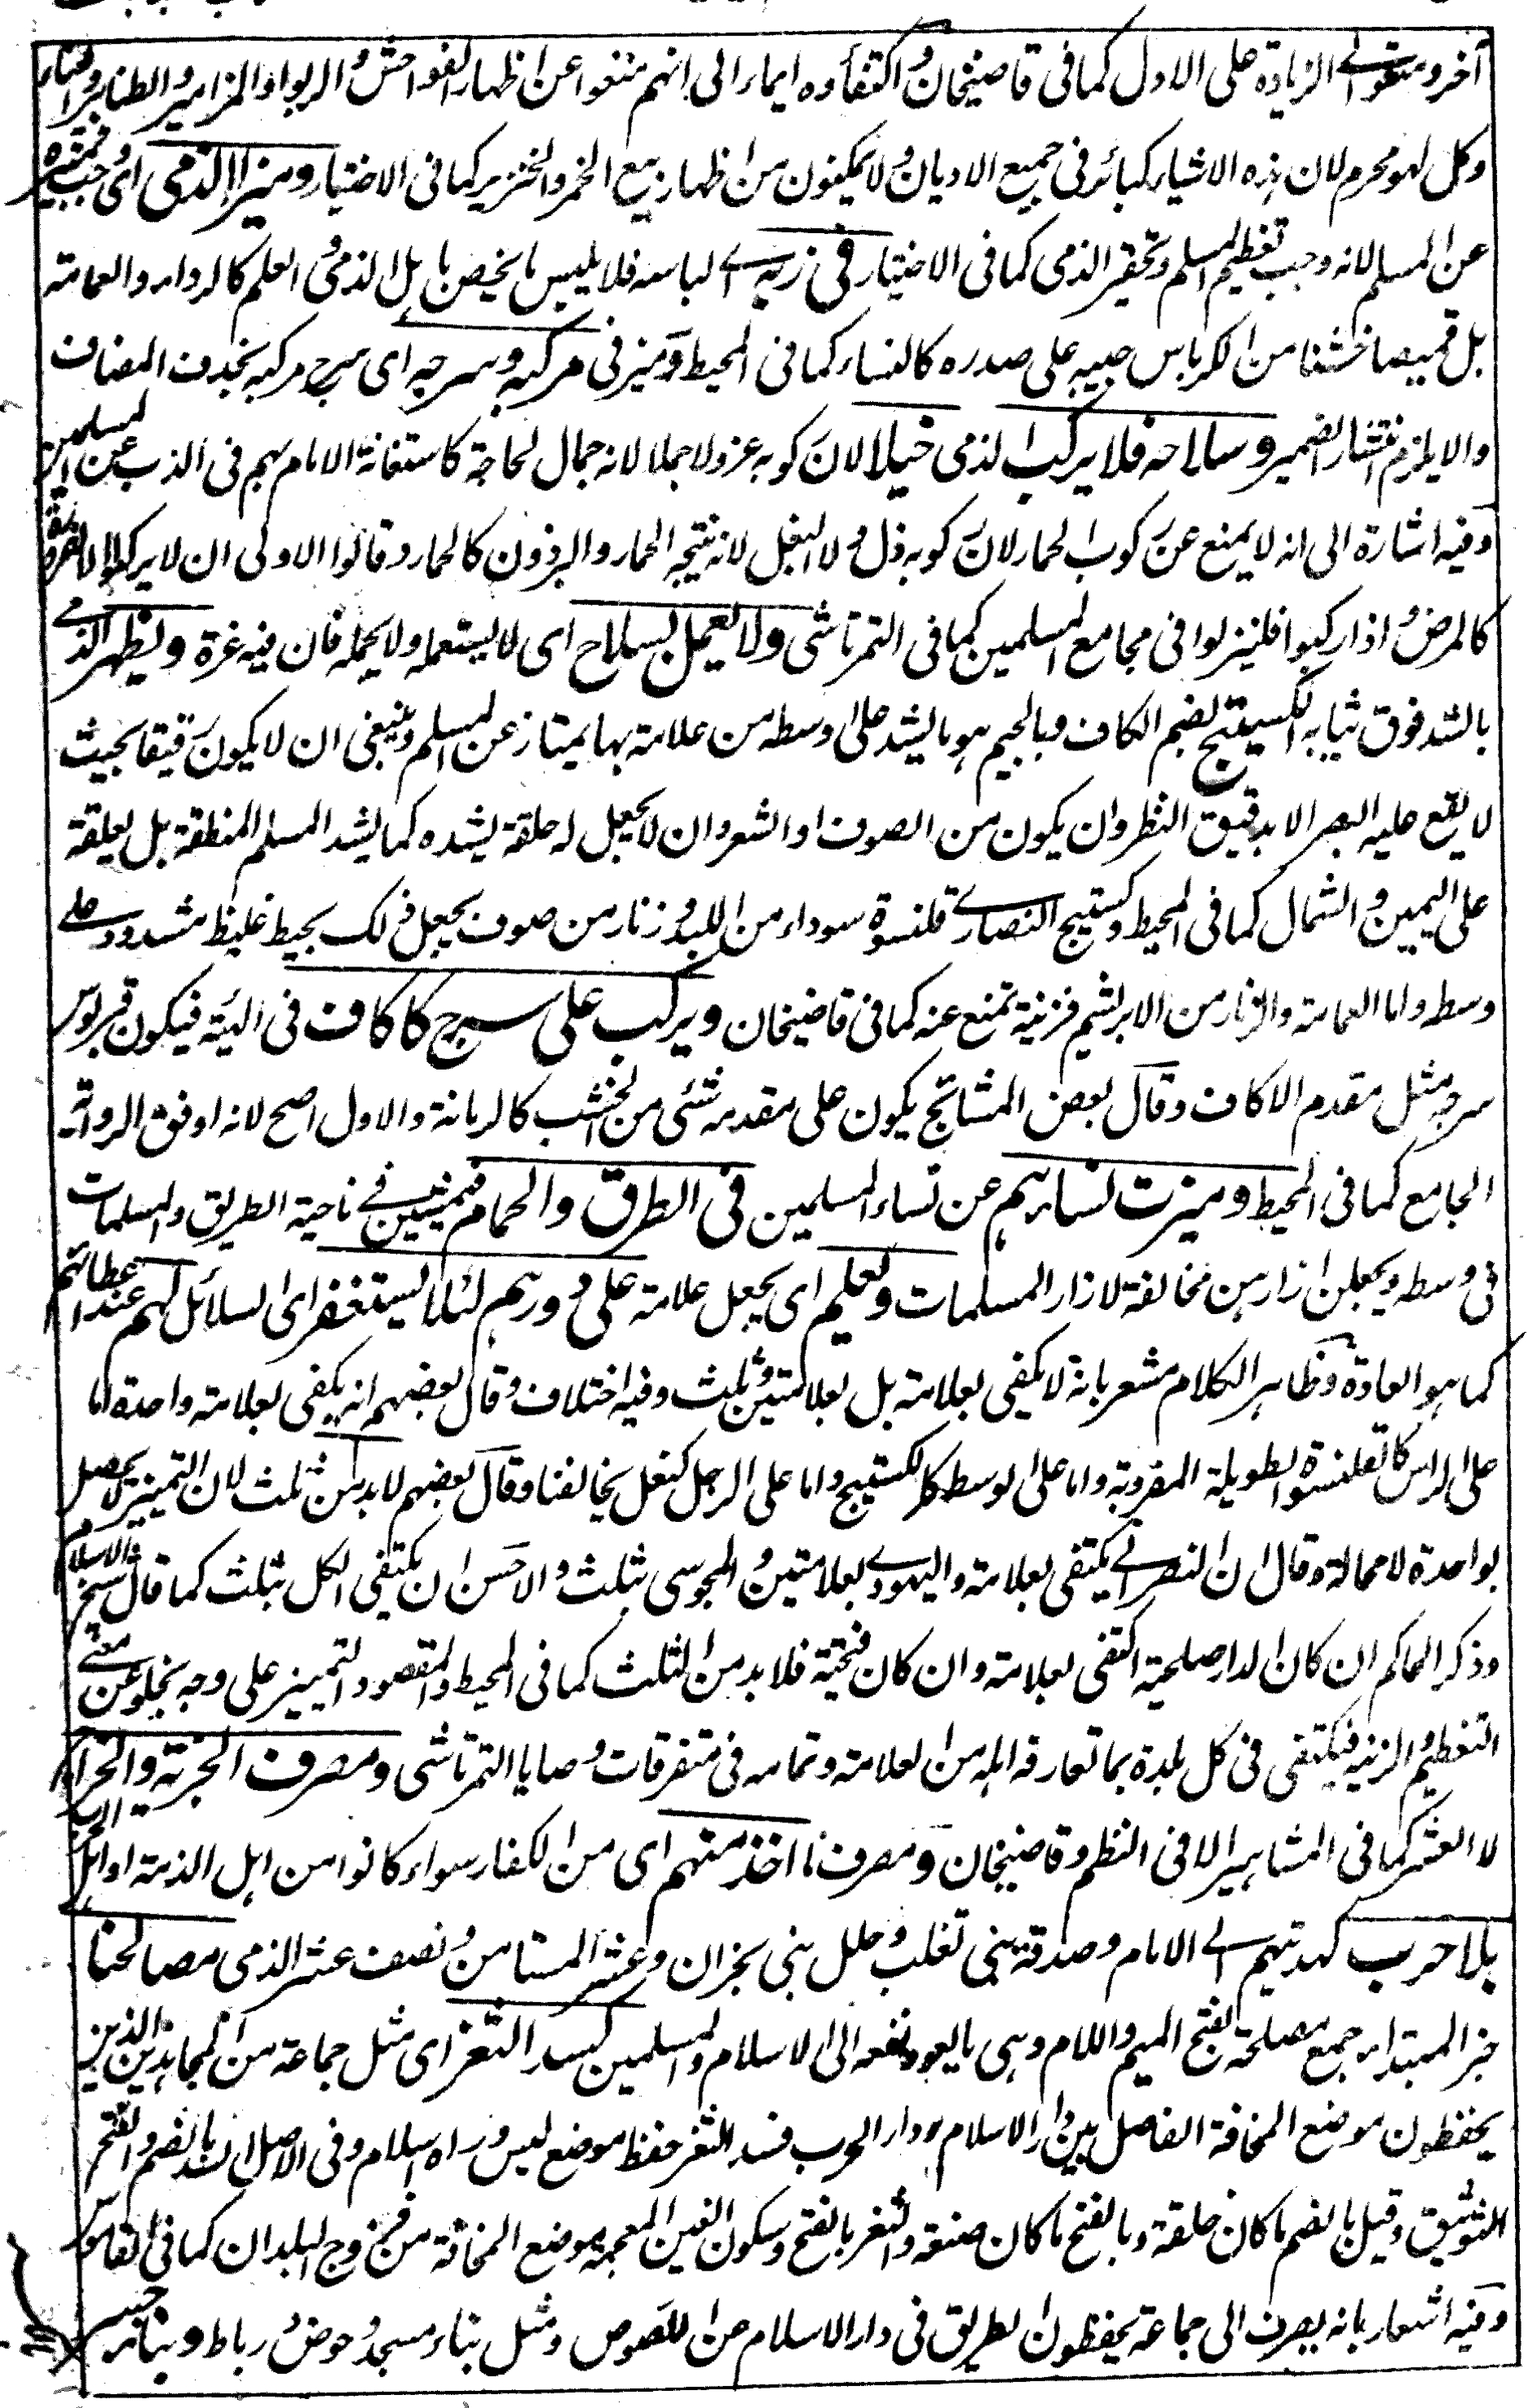 آخر ومتولى الزيادة على الاول كما فى قاضيخان واكتفاؤه ايماء الى انهم منعوا عن اظهار الفواحش والربوا والمزامير والطنابير والغناء
وكل لهو محرم لان هذه الاشياء كبائر فى جميع الاديان ولا يمكنون من اظهار بيع الخمر والخنزير كما فى الاختيار وميز الذمى اى وجب تمييزه
عن المسلم لانه وجب تعظيم المسلم وتحقير الذمى كما فى الاختيار فى زيه اى لباسه فلا يلبس ما يخص باهل الذمى والعلم كالرداء والعمامة
بل قميصا خشنا من الكرباس جيبه على صدره كالنساء كما فى المحيط وميز فى مركبه وسرجه اى سرج مركبه بحذف المضاف
والا يلزم انتشار الضمير وسلاحه فلا يركب الذمى خيلا لان ركوبه عز ولا جملا لانه جمال لحاجة كاستعانة الامام بهم فى الذب عن المسلمين
وفيه اشارة الى انه لا يمنع عن ركوب الحمار لان ركوبه ذل ولا البغل لانه نتيجة الحمار والبرذون كالحمار وقالوا الاولى ان لا يركبوا الا لضرورة
كالمرض واذا ركبوا فلينزلوا فى مجامع المسلمين كما فى التمرتاشى ولا يعمل بسلاح اى لا يستعمله ولا يحمله فان فيه غرة ويظهر الذمى
بالشد فوق ثيابه الكستيج بضم الكاف وبالجيم هو ما يشد على وسطه من علامة بها يمتاز عن المسلم وينبغى ان لا يكون رقيقا بحيث
لا يقع عليه البصر الا بدقيق النظر وان يكون من الصوف او الشعر وان لا يجعل له حلقة يشده كما يشد المسلم المنطقة بل يعلقة
على اليمين والشمال كما فى المحيط وكستيج النصارى قلنسوة سوداء من اللبد وزنار من صوف يجعل ذلك بخيط غليظ مشدود على
وسطه واما العمامة والزنار من الابريشم فزينة تمنع عنه كما فى قاضيخان ويركب على سرج كاكاف فى الهيئة فيكون قربوس
سرجه مثل مقدم الاكاف وقال بعض المشائخ يكون على مقدمه شئى من الخشب كالرمانة والاول اصح لانه اوفق الرواية
الجامع كما فى المحيط وميزت نساءهم عن نساء المسلمين فى الطرق والحمام فيمشين فى ناحية الطريق والمسلمات
فى وسطه ويجعلن ازارهن مخالفة لازار المسلمات ويعلم اى يجعل علامة على دورهم لئلا يستغفر اى السائل لهم عند اعطائهم
كما هو العادة وظاهر الكلام مشعر بانه لا يكفى بعلامة بل بعلامتين وثلث وفيه اختلاف وقال بعضهم انه يكفى بعلامة واحدة اما
على الراس كالقلنسوة الطويلة المضروبة واما على الوسط كالكستيج واما على الرجل كنعل يخالفنا وقال بعضهم لا بد من ثلث لان التمييز لا يحصل
بواحدة لا محالة وقال ان النصرانى يكتفى بعلامة واليهودى بعلامتين والمجوسى بثلث والاحسن ان يكتفى الكل بثلث كما قال شيخ الاسلام
وذكر الحاكم ان كان الدار صلحية اكتفى بعلامة وان كان فتحية فلا بد من الثلث كما فى المحيط والمقصود التمييز على وجه يخلو عن معنى
التعظيم والزينة فيكتفى فى كل بلدة بما تعارفه اهله من العلامة وتمامه فى متفرقات وصايا التمرتاشى ومصرف الجزية والخراج
لا العشر كما فى المشاهير الا فى النظم وقاضيخان ومصرف ما اخذ منهم اى من الكفار سواء كانوا من اهل الذمة او اهل الحرب
بلا حرب كهديتهم الى الامام وصدقة بنى تغلب وحلل بنى نجران وعشر المستامن ونصف عشر الذمى مصالحنا
خبر المبتداء جمع مصلحة بفتح الميم واللام وهى ما يعود نفعه الى الاسلام والمسلمين كسد الثغر اى مثل جماعة من المجاهدين الذين
يحفظون موضع المخافة الفاصل بين دار الاسلام ودار الحرب فسد الثغر حفظ موضع ليس وراه اسلام وفى الاصل السد بالضم والفتح
التوثيق وقيل بالضم ما كان خلقة وبالفتح ما كان صنعة والثغر بالفتح وسكون الغين المعجمة موضع المخافة من فروج البلدان كما فى القاموس
وفيه اشعار بانه يصرف الى جماعة يحفظون الطريق فى دار الاسلام من اللصوص ومثل بناء مسجد وحوض ورباط وبناء جسر